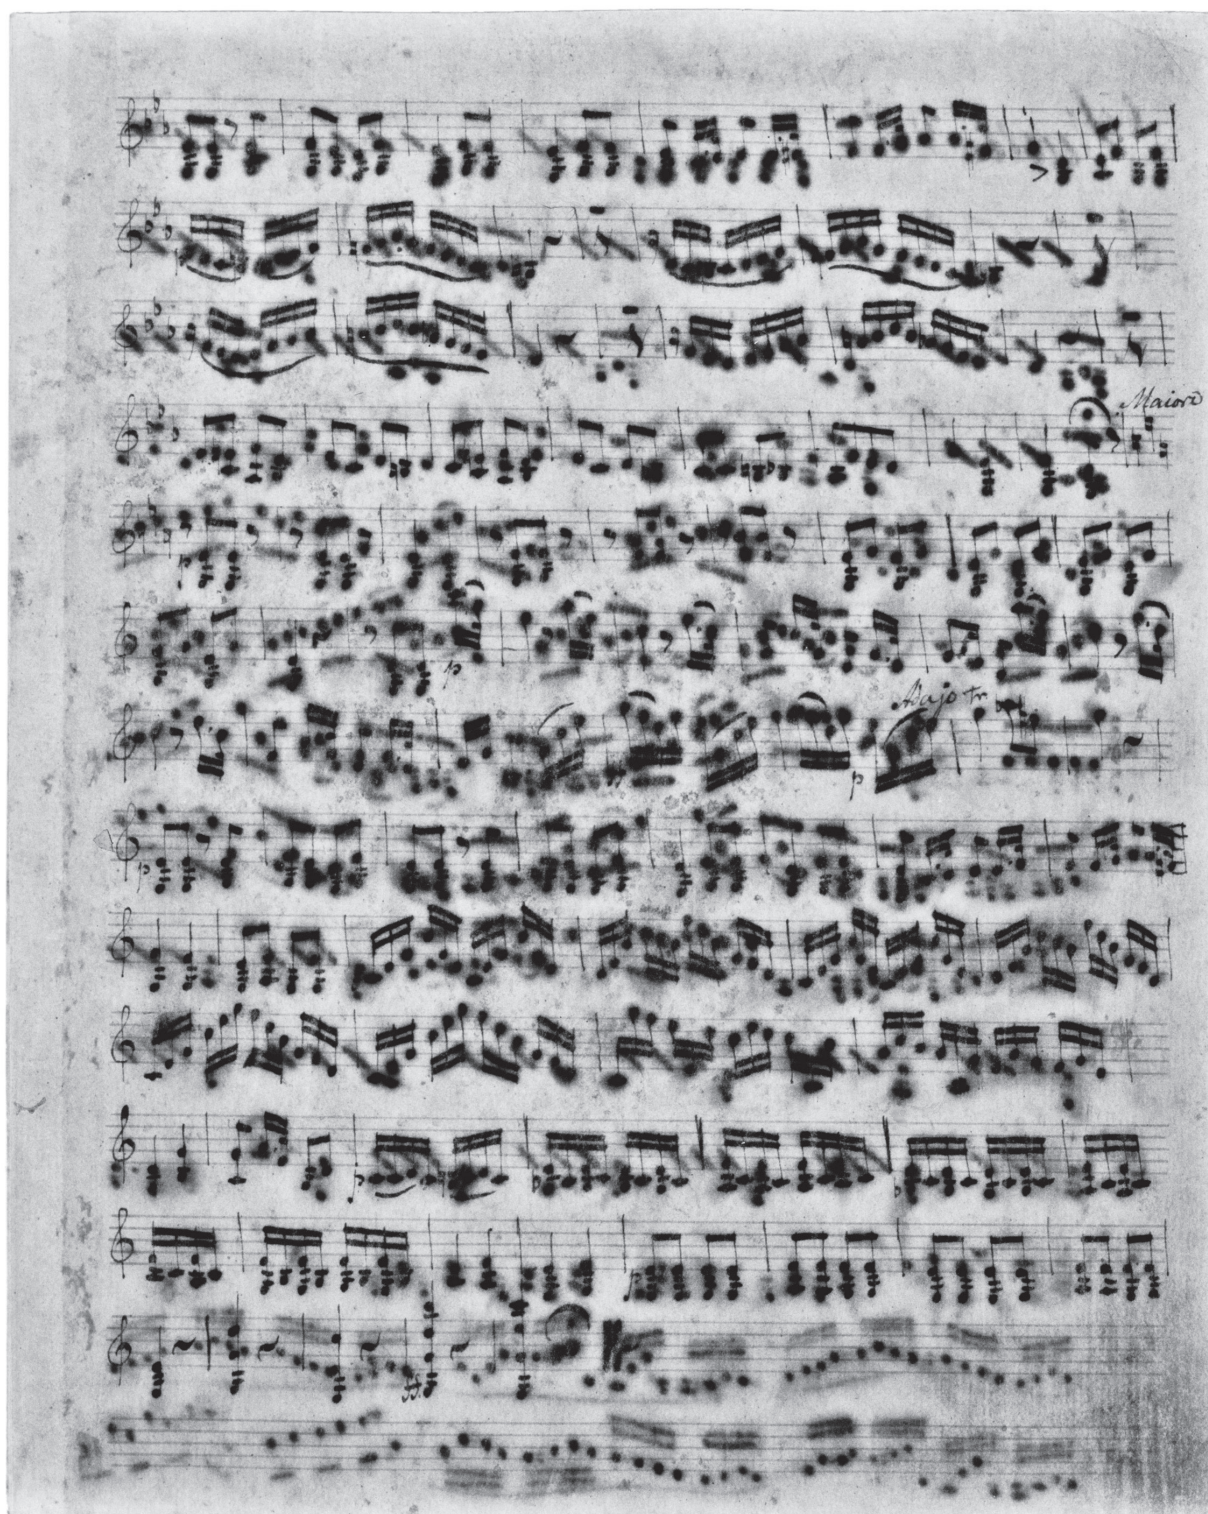 Maiore
p
p
Adajo tr
p
p
p
ff.